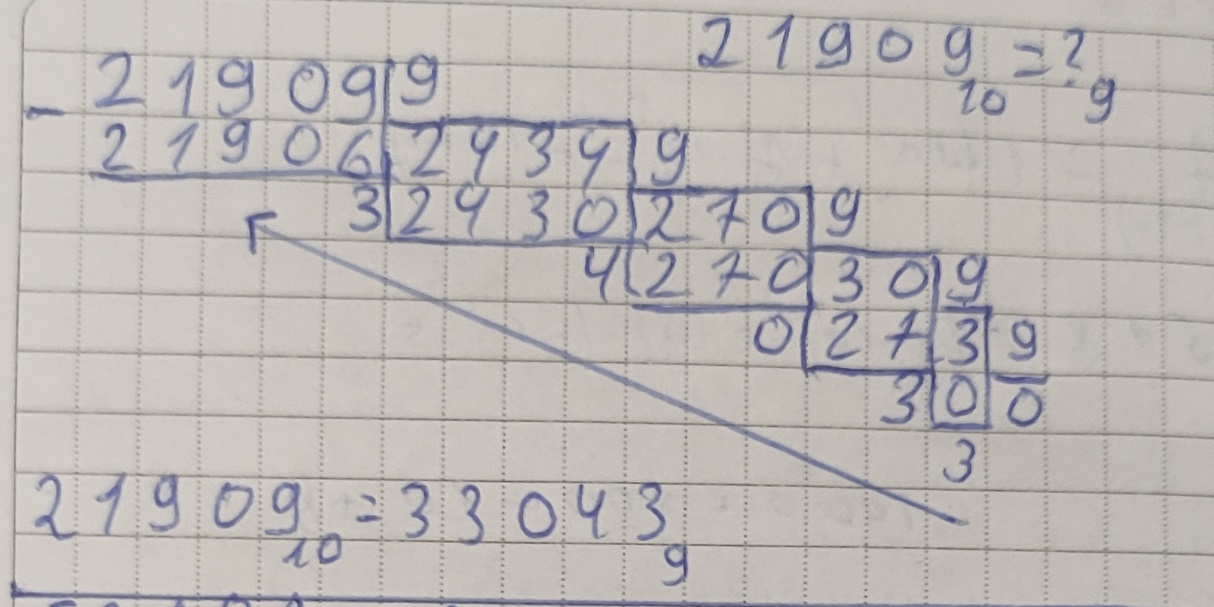 21909₁₀ = ?₉
- 21909 | 9
21906 | 2434 | 9
3 | 2430 | 270 | 9
4 | 270 | 30 | 9
0 | 27 | 3 | 9
3 | 0 | 0
3
21909₁₀ = 33043₉